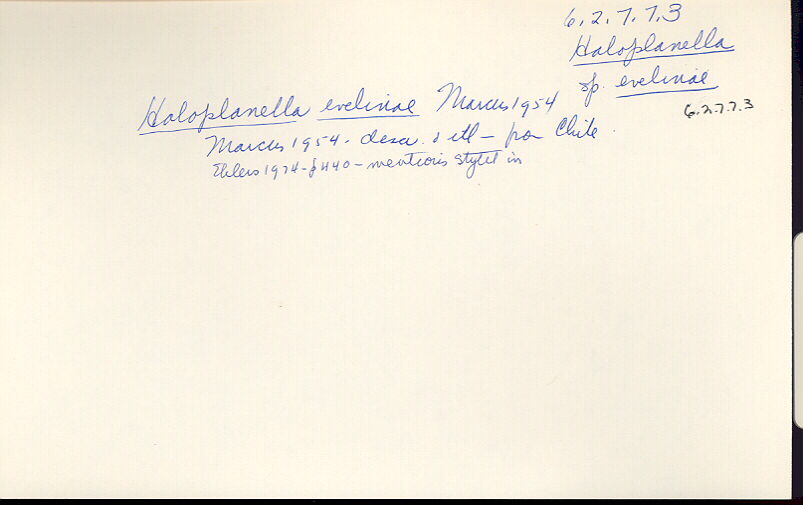 6.2.7.7.3
Haloplanella
sp. evelinae
6.2.7.7.3
Haloplanella evelinae Marcus 1954
Marcus 1954 - descr. & ill - from Chile.
Ehlers 1974 - p 440 - mentions stylet in